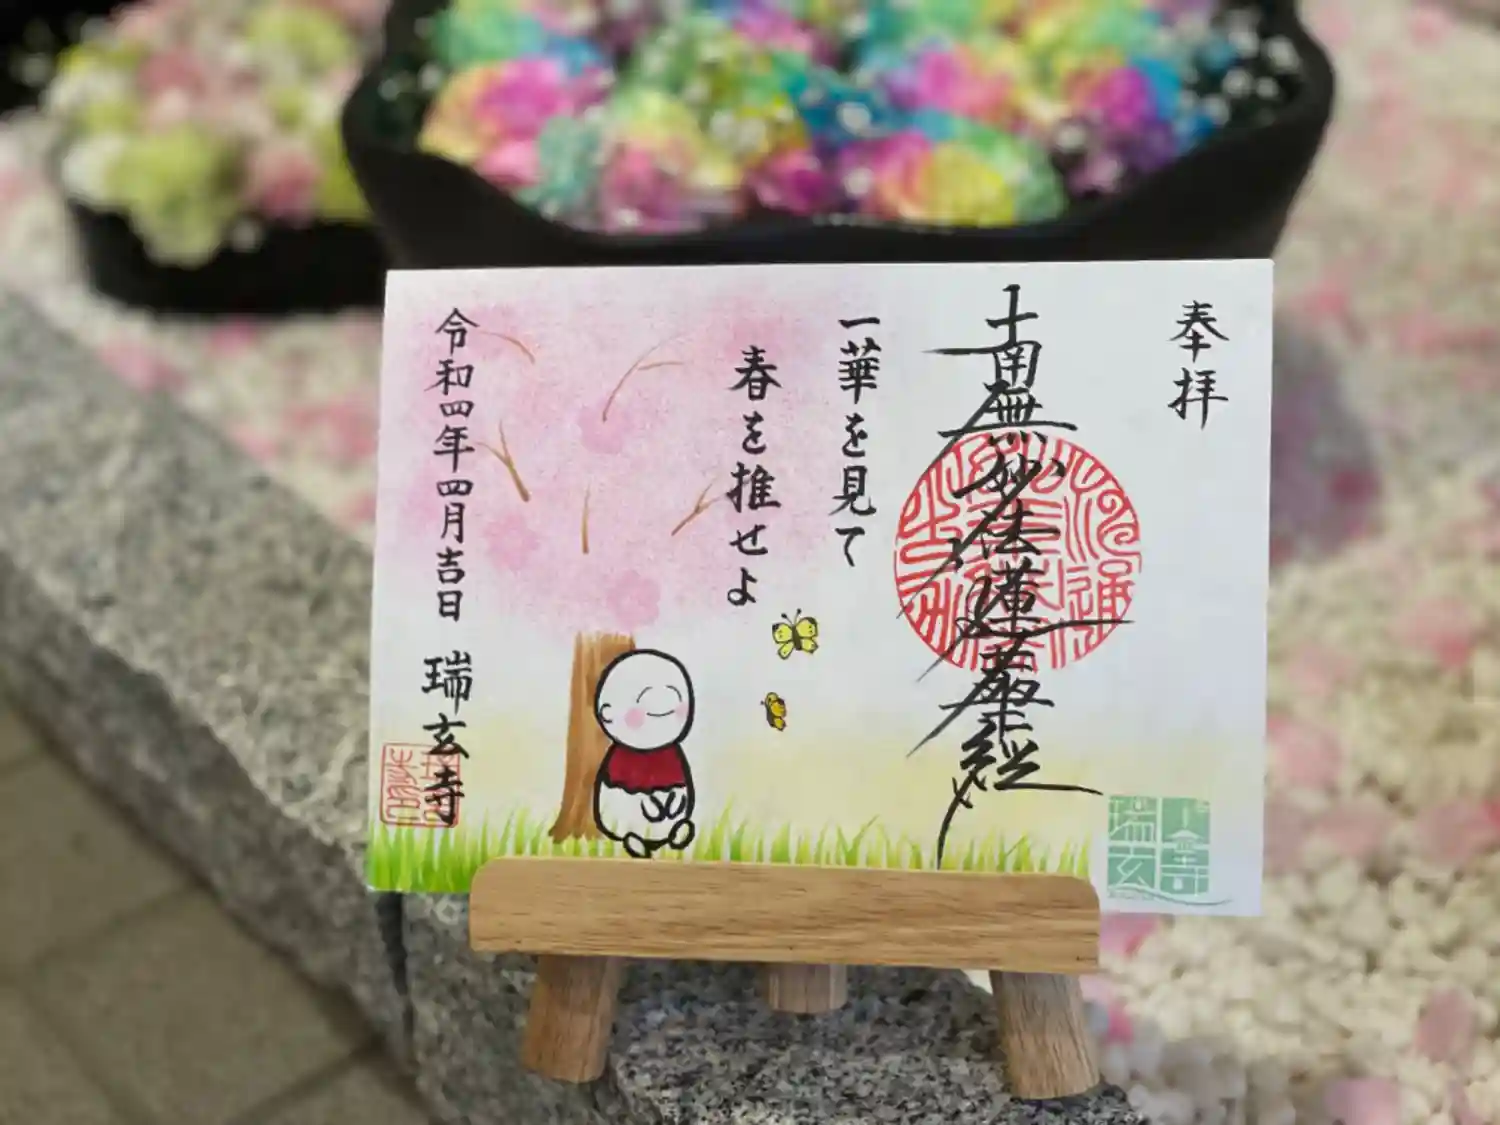 奉拝
南無妙法蓮華経
一華を見て
春を推せよ
令和四年四月吉日 瑞玄寺
瑞玄